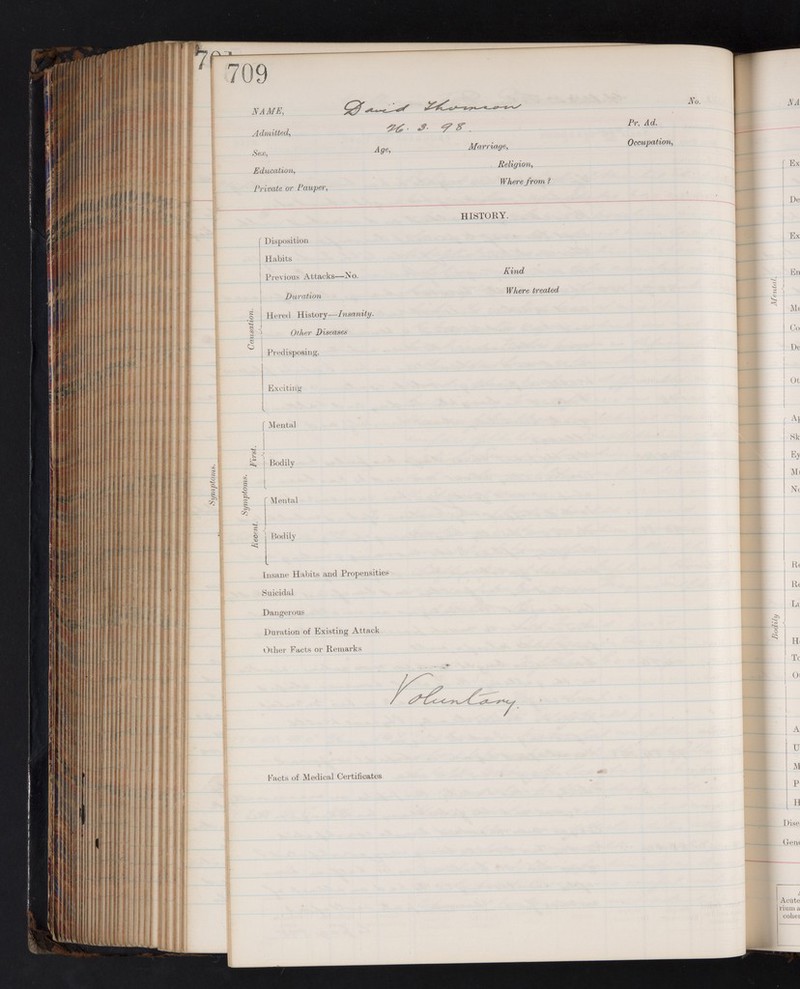 709
NAME, David Thomson No.
Admitted, 26. 3. 98. Pr. Ad.
Sex, Age, Marriage, Occupation,
Education, Religion,
Private or Pauper, Where from?
HISTORY.
Causation.
Disposition
Habits
Previous Attacks—No. Kind
Duration Where treated
Hered. History—Insanity.
Other Diseases
Predisposing.
Exciting
Symptoms.
First.
Mental
Bodily
Recent.
Mental
Bodily
Insane Habits and Propensities
Suicidal
Dangerous
Duration of Existing Attack
Other Facts or Remarks
Voluntary.
Facts of Medical Certificates
Symptoms.
Mental.
Bodily
Acute